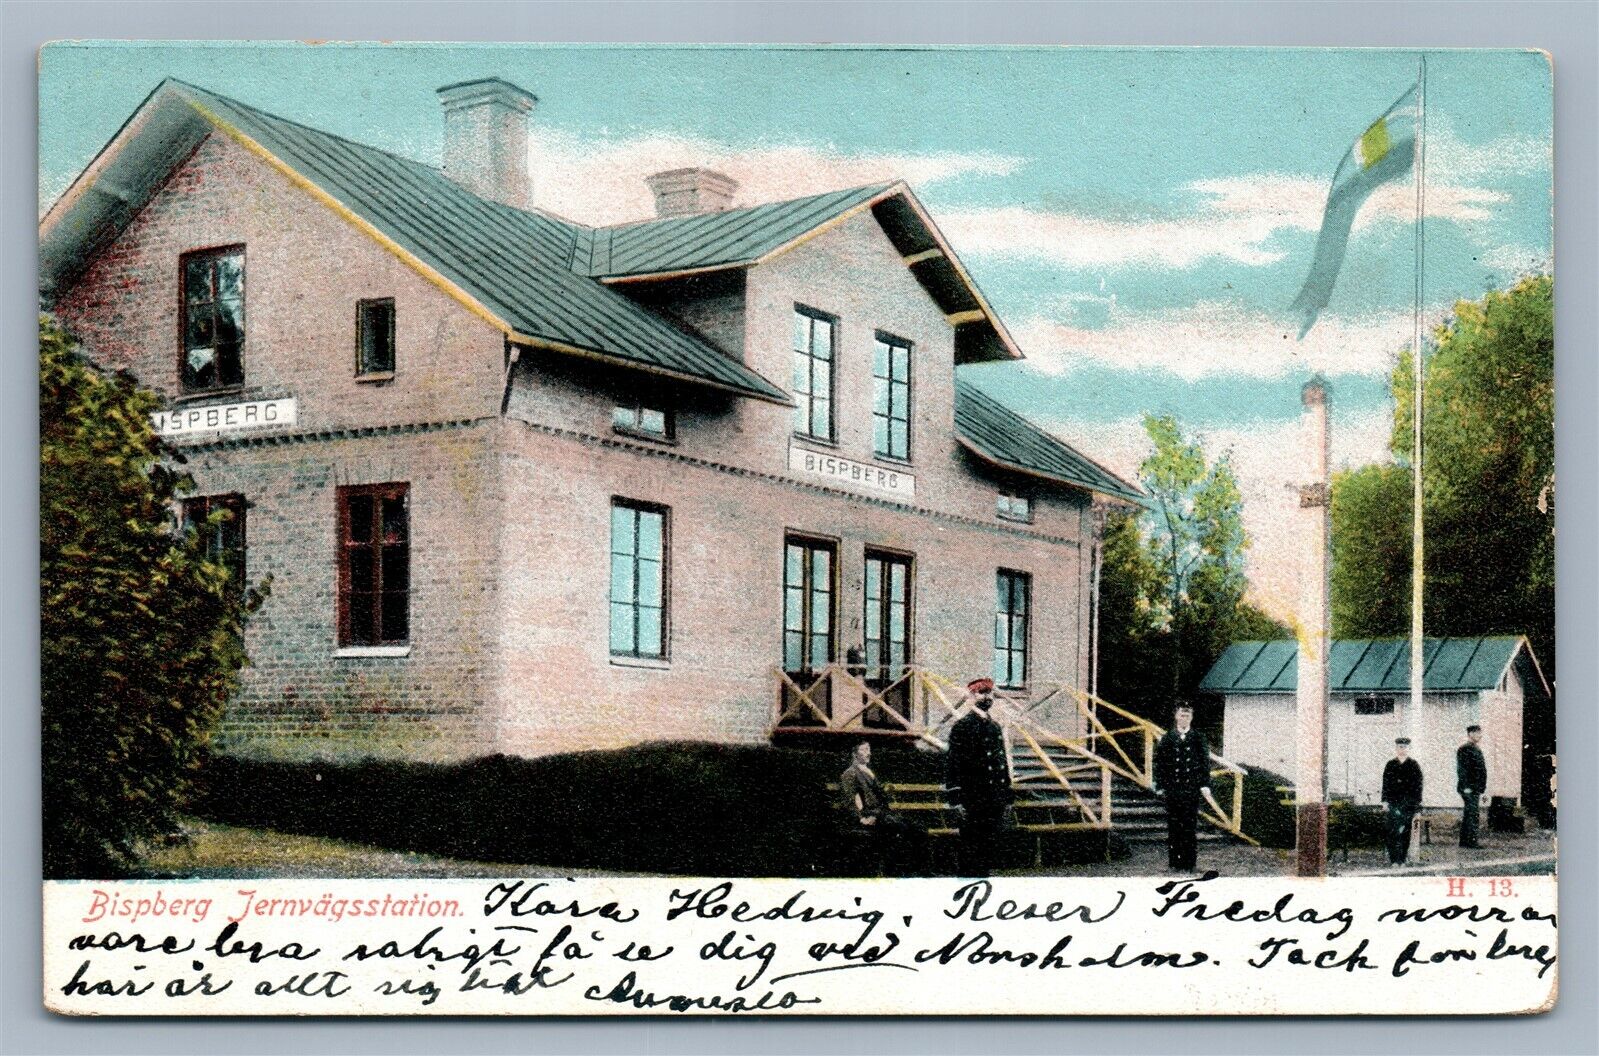 ISPBERG
BISPBERG
Bispberg Jernvägsstation.
H. 13.
Kära Hedvig. Reser Fredag
vore bra roligt få se dig ved Norsholm. Tack för
här är allt sig likt Augusta